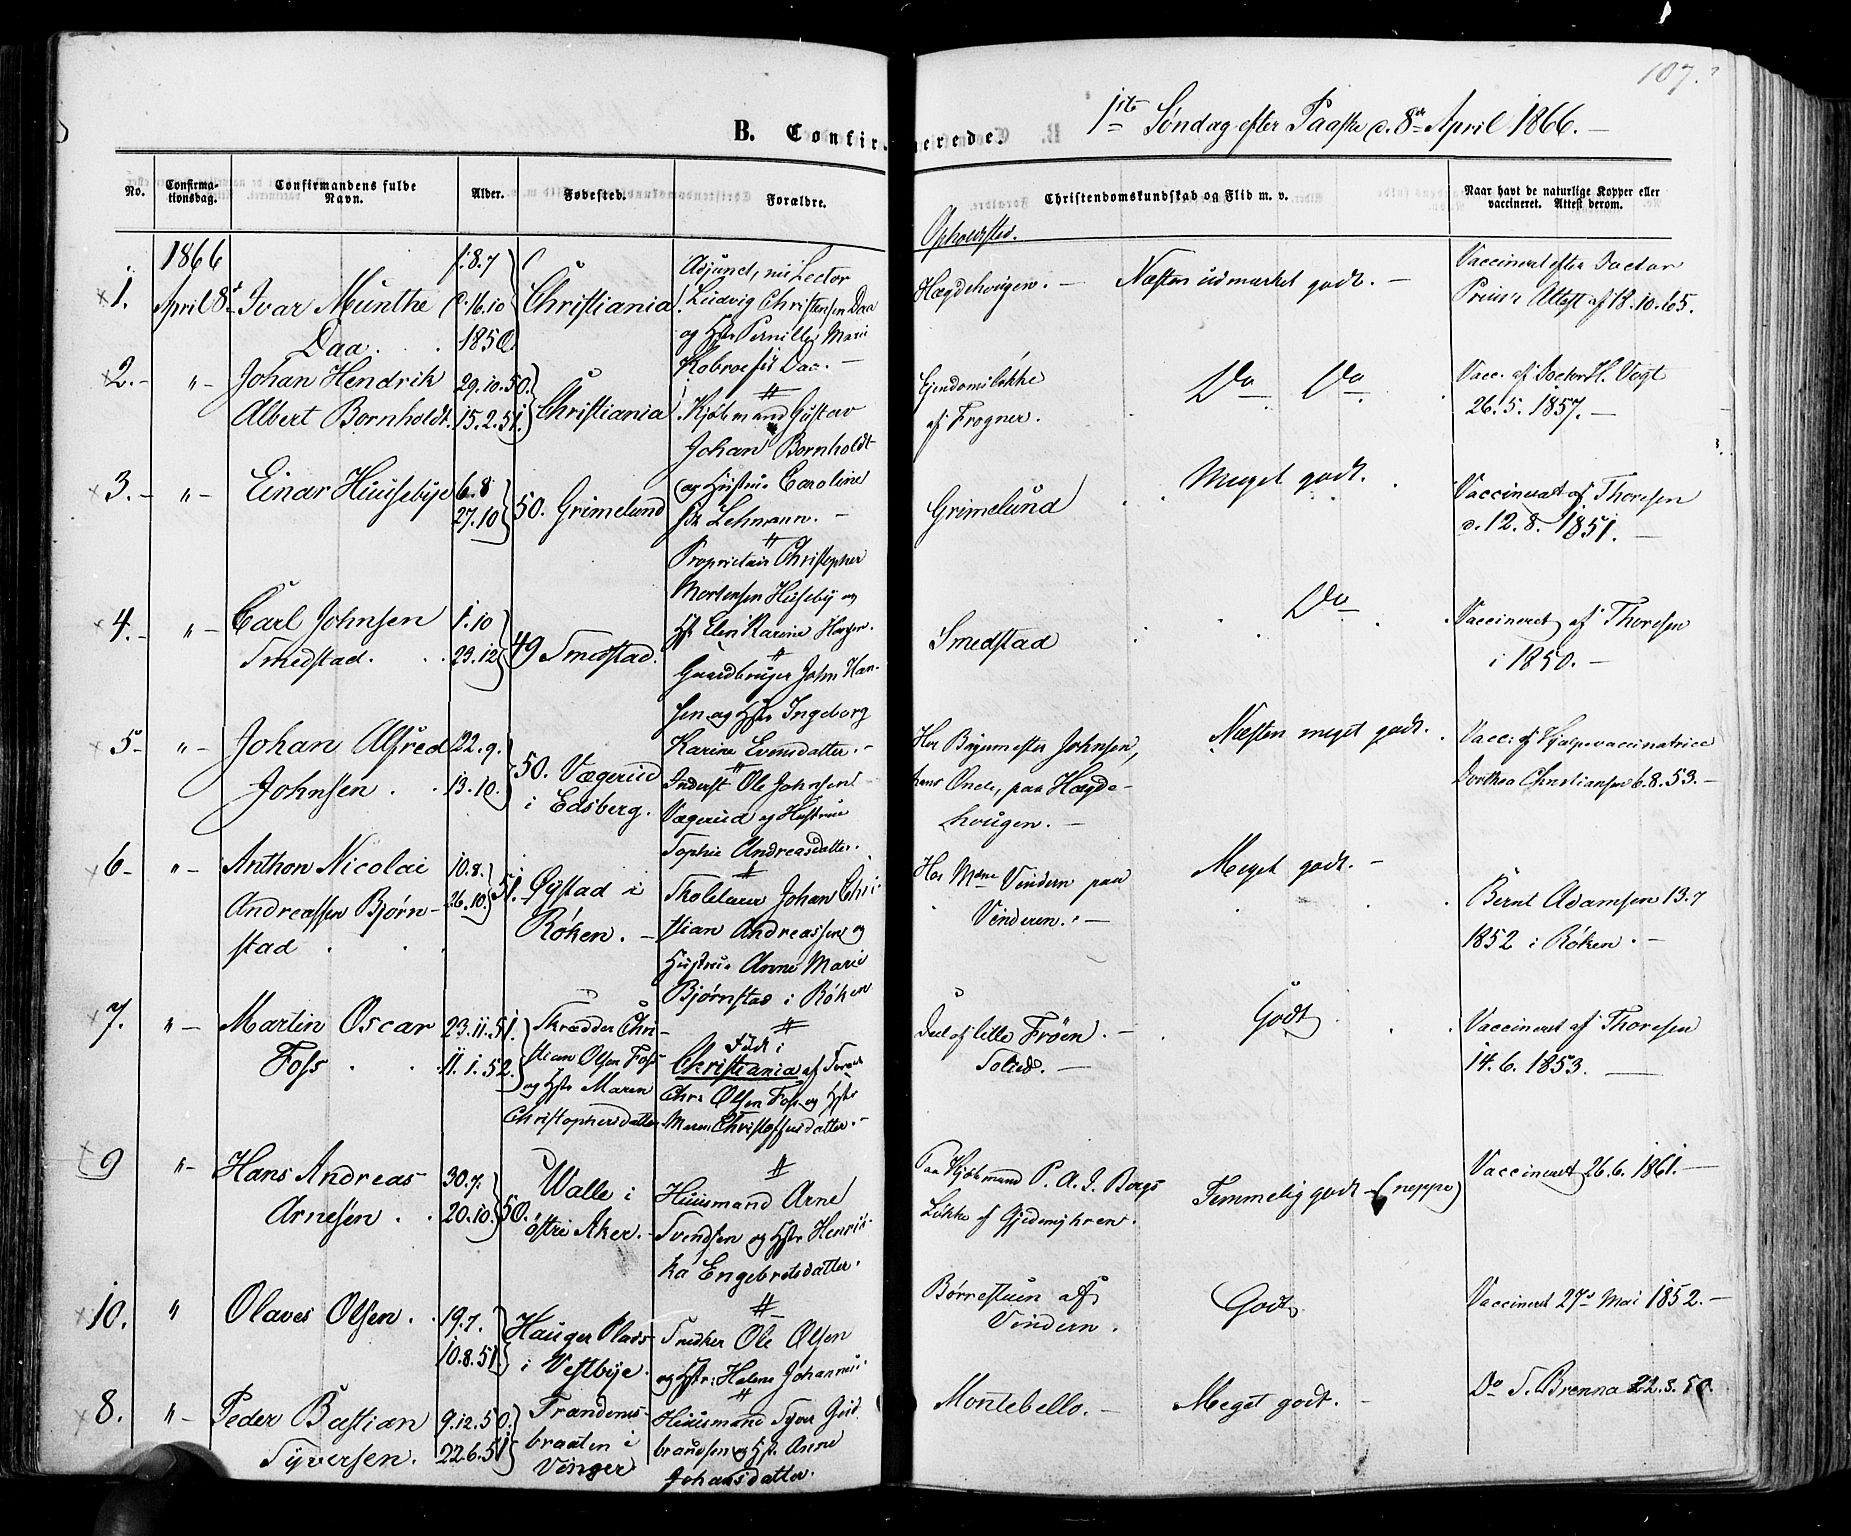 107.
B. Confirmerede.
1ste Søndag efter Paaske d. 8de April 1866. —
No.
Confirmationsdag.
Confirmandens fulde Navn.
Alder.
Fødested.
Forældre.
Christendomskundskab og Flid m. v.
Naar havt de naturlige Kopper eller vaccineret. Attest derom.
Opholdsted.
1866
1.
April 8de
Ivar Munthe
Daa.
f. 8.7
d. 16.10
1850
Christiania
Adjunct, nu Lector
Ludvig Christensen Daa
og Hstr Pernille Marie
Daa. —
Hægdehougen. —
Næsten udmærket godt. —
Vaccineret efter Doctor
Attest af 18.10.65.
2. —
" —
Johan Hendrik
Albert Bornholdt.
29.10.50.
15.2.51.
Christiania
Kjøbmand Gustav
Johan Bornholdt
og Hustru Caroline
f. Lehmann. —
Eiendomsløkke
af Frogner.
Do Do
Vacc. af Doctor H. Vogt
26.5.1857. —
3. —
" —
Einar Huusebye
6.8
27.10
50.
Grimelund
Proprietair Christopher
Mortensen Huseby og
Hst Elen Karine Hansen.
Grimelund
Meget godt.
Vaccineret af Thoresen
d. 12.8.1851. —
4. —
" —
Carl Johnsen
Smedstad.
1.10
23.12
49
Smedstad.
Gaardbruger John Han-
sen og Hstr Ingeborg
Karine Evensdatter. —
Smedstad
Do
Vaccineret af Thoresen
i 1850. —
5 —
" —
Johan Alfred
Johnsen
22.9.
13.10.
50.
Vægerud
i Edsberg.
Inderst Ole Johnsen
Vægerud og Hustrue
Sophie Andreasdatter.
Hos Bygmester Johnsen,
hans Oncle, paa Hægde-
hougen. —
Næsten meget godt.
Vacc. af Hjælpevaccinatrice
Dorthea Christiansen 6.8.53. —
6 —
" —
Anthon Nicolai
Andreassen Bjørn-
stad
10.8.
26.10.
51.
Øystad i
Røken. —
Skolelærer Johan Chri-
stian Andreassen og
Hustrue Anne Marie
Bjørnstad i Røken
Hos Mme Vindern paa
Vinderen. —
Meget godt. —
Bernt Adamsen 13.7
1852 i Røken. —
7.
" —
Martin Oscar
Foss
23.11.51.
11.1.52.
Skrædder Chri-
stian Olsen Foss
og Hstr Maren
Christophersdatter
Født i
Christiania af
Chr. Olsen Foss og Hstr
Maren Christoffersdatter. —
Deel af lille Frøen. —
Godt
Vaccineret af Thoresen
14.6.1853. —
9
" —
Hans Andreas
Arnesen
30.7.
20.10.
50.
Walle i
østre Aker. —
Huusmand Arne
Svendsen og Hstr Henri-
ka Engebretsdatter.
Paa Kjøbmand P. A. J. Bergs
Løkke af Gjedemyhren.
Temmelig godt — (neppe)
Vaccineret 26.6.1861. —
10.
"
Olaves Olsen.
19.7.
10.8.51.
Hauger Plads
i Vestbye.
Snedker Ole Olsen
og Hstr: Helene
Børrestuen af
Vindern.
Godt
Vaccineret 27de Mai 1852. —
8.
" —
Peder Bastian
Syversen.
9.12.50.
22.6.51
braaten i
Vinger
Huusmand Syver Guld-
brandsen og Hstr Anne
Johansdatter.
Montebello. —
Meget godt. —
Do S. Brenna 22.8.50